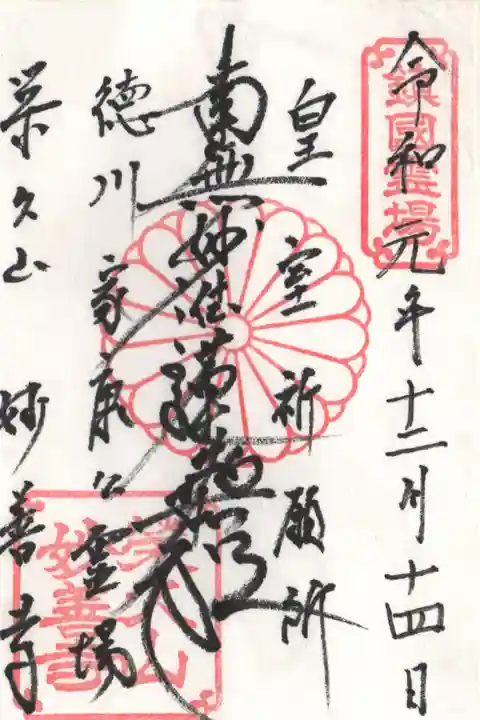 令和元年十二月十四日
鎮國霊場
皇室祈願所
南無妙法蓮華経
徳川家康公霊場
栄久山 妙善寺
栄久山
妙善寺